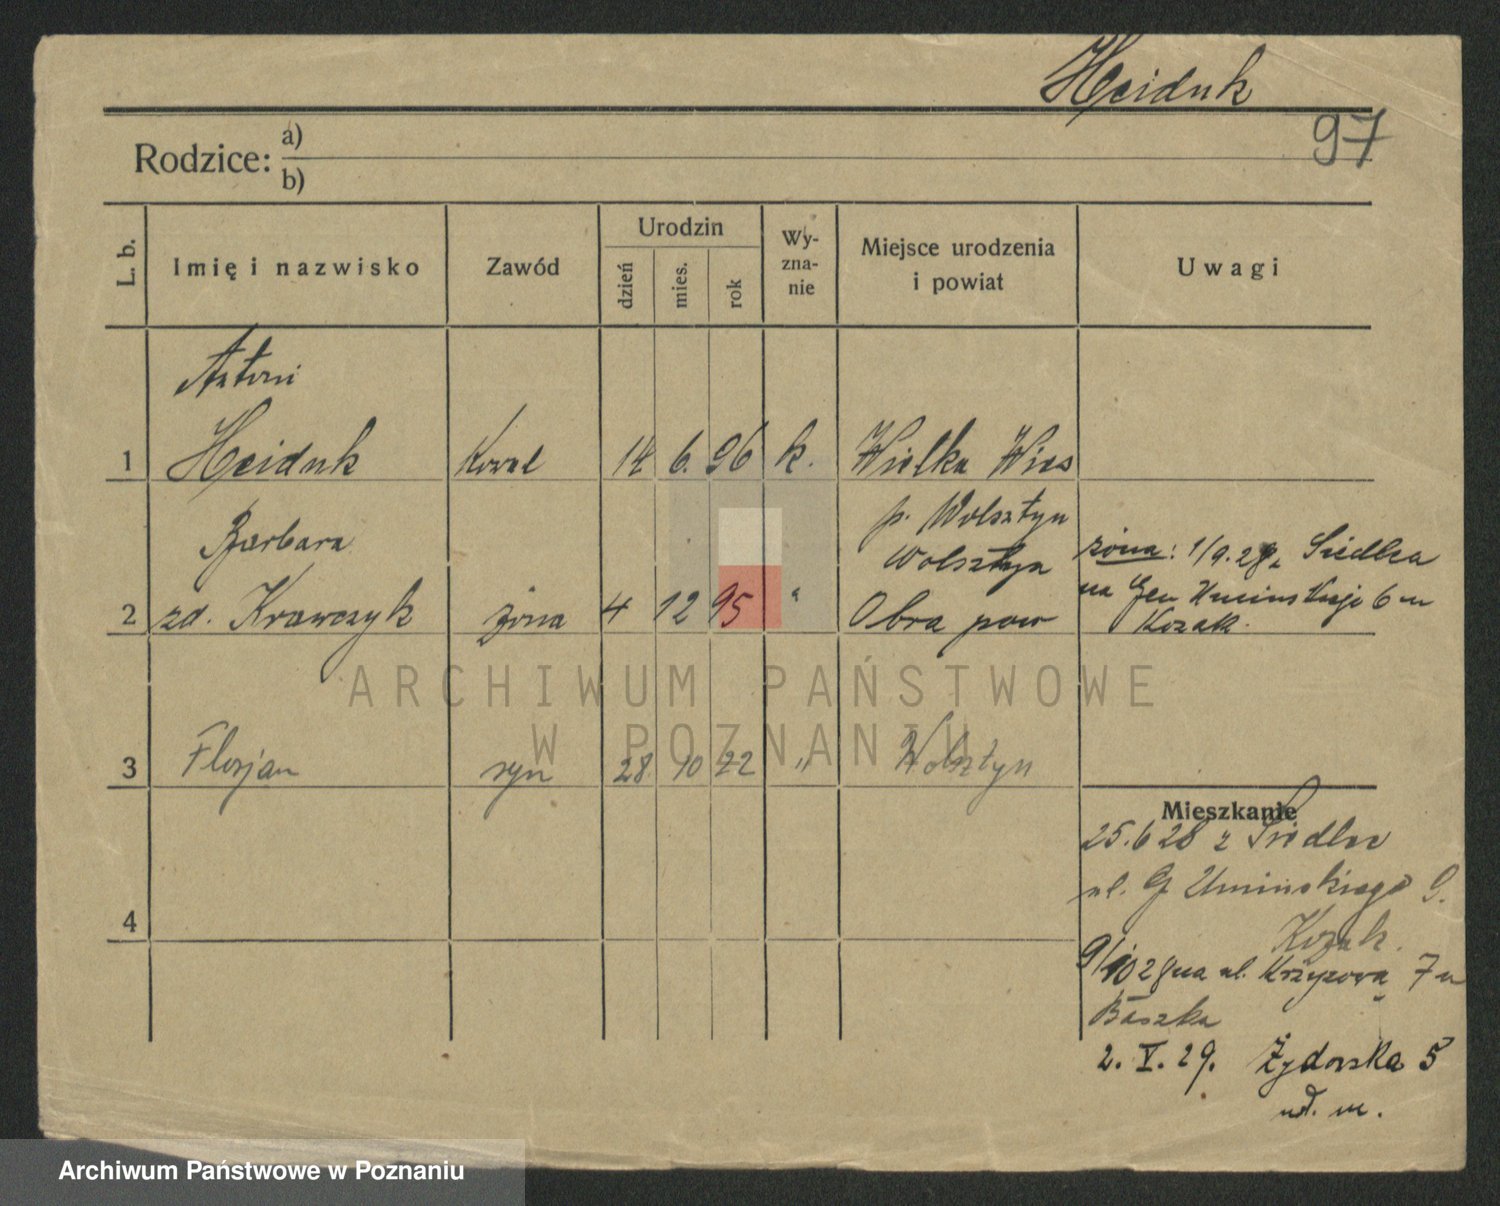 Heiduk
97
Rodzice: a)
b)
L. b. Imię i nazwisko Zawód Urodzin dzień mies. rok Wy-zna-nie Miejsce urodzenia i powiat Uwagi
Antoni
1 Heiduk Kowal 14 6. 96 k. Wielka Wies
p. Wolsztyn
Barbara Wolsztyn
2 zd. Krawczyk żona 4 12 95 " Obra pow
żona: 1/9.28 Siedlca
na Gen Umińskiego 6 u
Kozak.
3 Florjan syn 28 10 22 " Wolsztyn
Mieszkanie
25.6 28 z Siedlec
ul. G Umińskiego 6.
Kozak.
4
9/10 28 na ul. Krzyzowa 7 u
Baszka
2. V. 29. Żydowska 5
ARCHIWUM PAŃSTWOWE
W POZNANIU
Archiwum Państwowe w Poznaniu